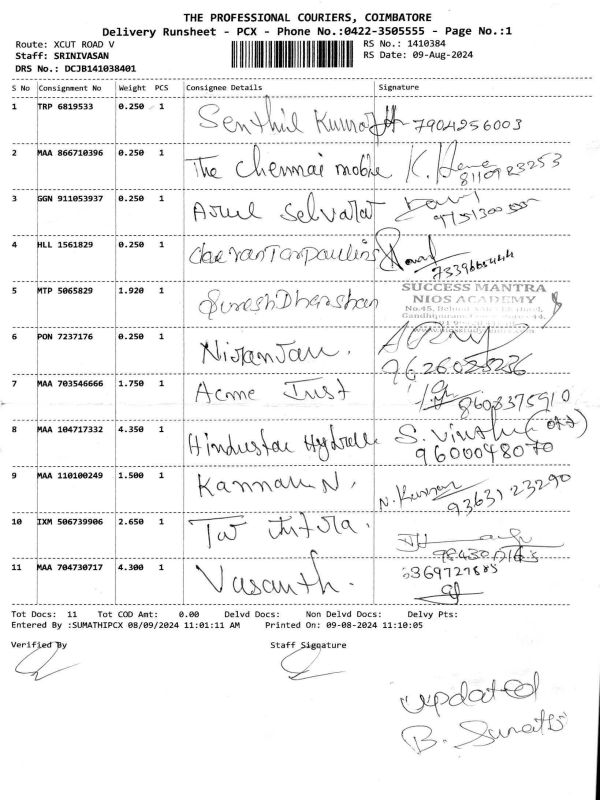 THE PROFESSIONAL COURIERS, COIMBATORE
Delivery Runsheet - PCX - Phone No.:0422-3505555 - Page No.:1
Route: XCUT ROAD V
RS No.: 1410384
Staff: SRINIVASAN
RS Date: 09-Aug-2024
DRS No.: DCJB141038401
S No Consignment No Weight PCS Consignee Details Signature
1 TRP 6819533 0.250 1 Senthil Kumar 7904256003
2 MAA 866710396 0.250 1 The Chennai mobile K. 8110923253
3 GGN 911053937 0.250 1 Arul Selvarat
4 HLL 1561829 0.250 1 7339665444
5 MTP 5065829 1.920 1 Suresh Dharshan
SUCCESS MANTRA
NIOS ACADEMY
6 PON 7237176 0.250 1 Niranjan. 9626025236
7 MAA 703546666 1.750 1 Acme Trust 8608375910
8 MAA 104717332 4.350 1 S. 9600048070
9 MAA 110100249 1.500 1 Kannan N. N. 9363123290
10 IXM 506739906 2.650 1
11 MAA 704730717 4.300 1 Vasanth. 6369727885
Tot Docs: 11 Tot COD Amt: 0.00 Delvd Docs: Non Delvd Docs: Delvy Pts:
Entered By :SUMATHIPCX 08/09/2024 11:01:11 AM Printed On: 09-08-2024 11:10:05
Verified By Staff Signature
updated
B.